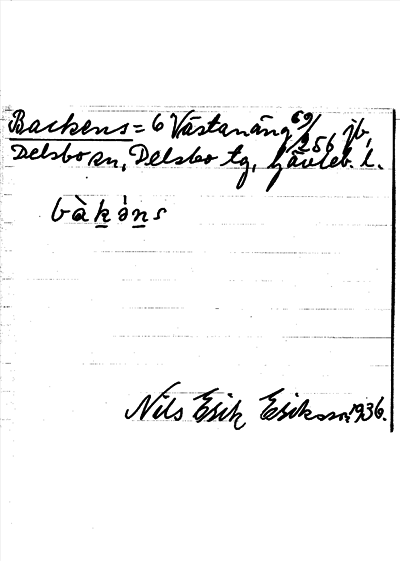 Backens = 6 Västanäng 69/256 jb,
Delsbo sn, Delsbo tg, Gävleb. l.
bàkə̀ns
Nils Erik Eriksson 1936.